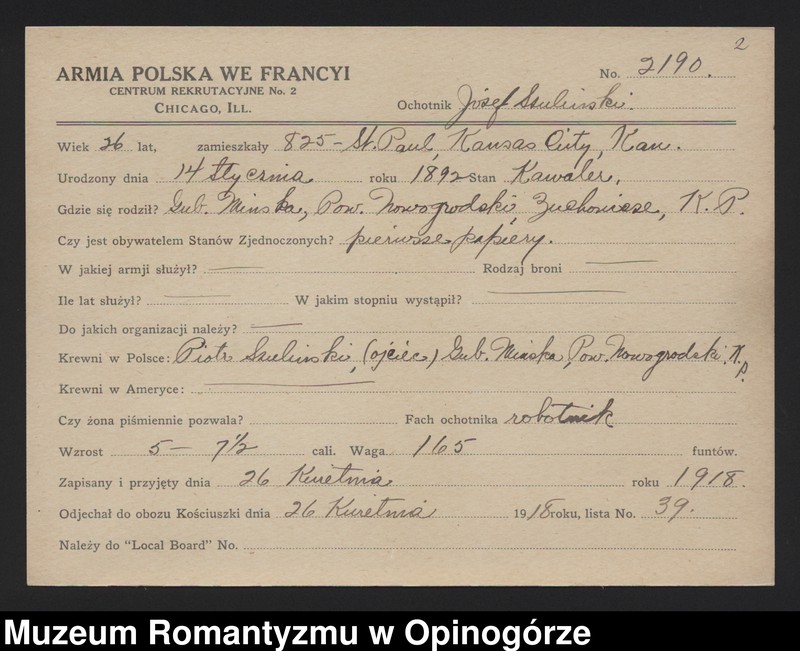 2
ARMIA POLSKA WE FRANCYI
CENTRUM REKRUTACYJNE No. 2
CHICAGO, ILL.
No. 2190.
Ochotnik Józef Szulinski.
Wiek 26 lat, zamieszkały 825 - St. Paul, Kansas City, Kan.
Urodzony dnia 14 Stycznia roku 1892 Stan Kawaler,
Gdzie się rodził? Gub. Minska, Pow. Nowogrodski, K. P.
Czy jest obywatelem Stanów Zjednoczonych? pierwsze papiery.
W jakiej armji służył? — Rodzaj broni —
Ile lat służył? — W jakim stopniu wystąpił? —
Do jakich organizacji należy? —
Krewni w Polsce: Piotr Szulinski, (ojciec) Gub. Minska, Pow. Nowogrodski, K. P.
Krewni w Ameryce: —
Czy żona piśmiennie pozwala? Fach ochotnika robotnik
Wzrost 5 - 7½ cali. Waga 165 funtów.
Zapisany i przyjęty dnia 26 Kwietnia roku 1918.
Odjechał do obozu Kościuszki dnia 26 Kwietnia 1918 roku, lista No. 39.
Należy do "Local Board" No.
Muzeum Romantyzmu w Opinogórze